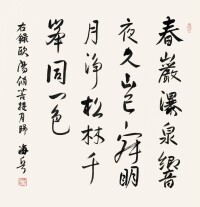 春巖瀑泉響
夜久山已寂明
月淨松林千
峯同一色
右録歐陽脩菩提月歸